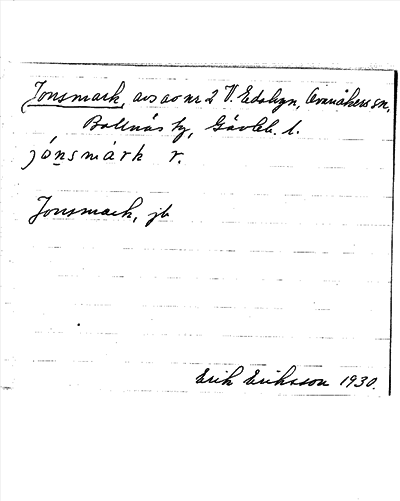 Jonsmark, avs ao nr 2 V. Edsbyn, Ovanåkers sn,
Bollnäs kg, Gävleb. l.
jónsmárk r.
Jonsmark, jb
Erik Eriksson 1930.